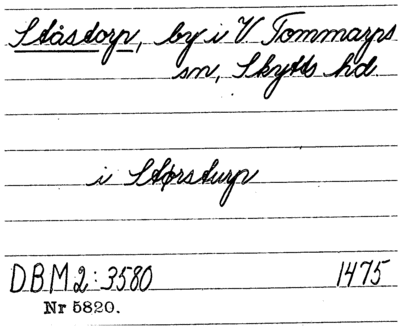 Ståstorp, by i V Tommarps
sn, Skytts hd
i Størsturp
DBM2:3580 1475
Nr 5820.